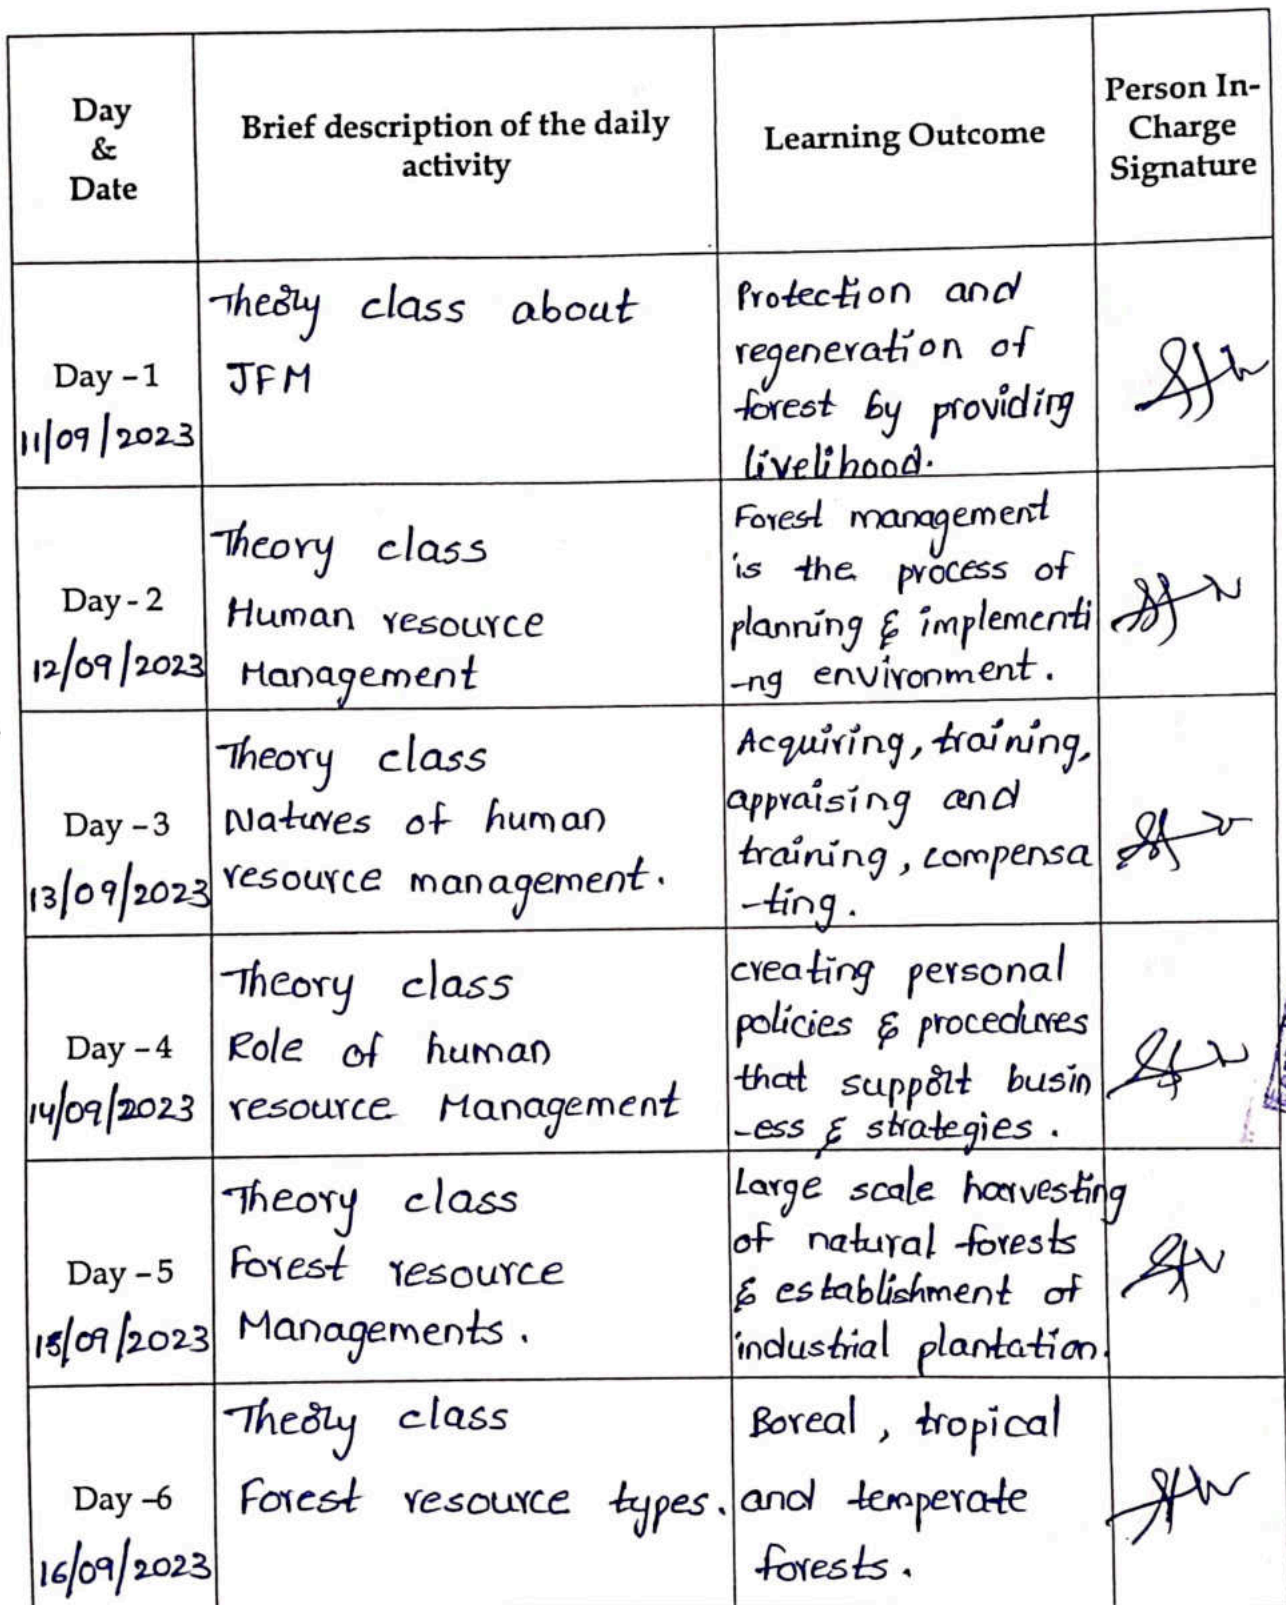 Day
&
Date
Brief description of the daily
activity
Learning Outcome
Person In-
Charge
Signature
Day - 1
11/09/2023
Theory class about
JFM
Protection and
regeneration of
forest by providing
livelihood.
Day - 2
12/09/2023
Theory class
Human resource
Management
Forest management
is the process of
planning & implementi
-ng environment.
Day - 3
13/09/2023
Theory class
Natures of human
resource management.
Acquiring, training,
appraising and
training, compensa
-ting.
Day - 4
14/09/2023
Theory class
Role of human
resource Management
creating personal
policies & procedures
that support busin
-ess & strategies.
Day - 5
15/09/2023
Theory class
Forest resource
Managements.
Large scale harvesting
of natural forests
& establishment of
industrial plantation.
Day - 6
16/09/2023
Theory class
Forest resource types.
Boreal, tropical
and temperate
forests.